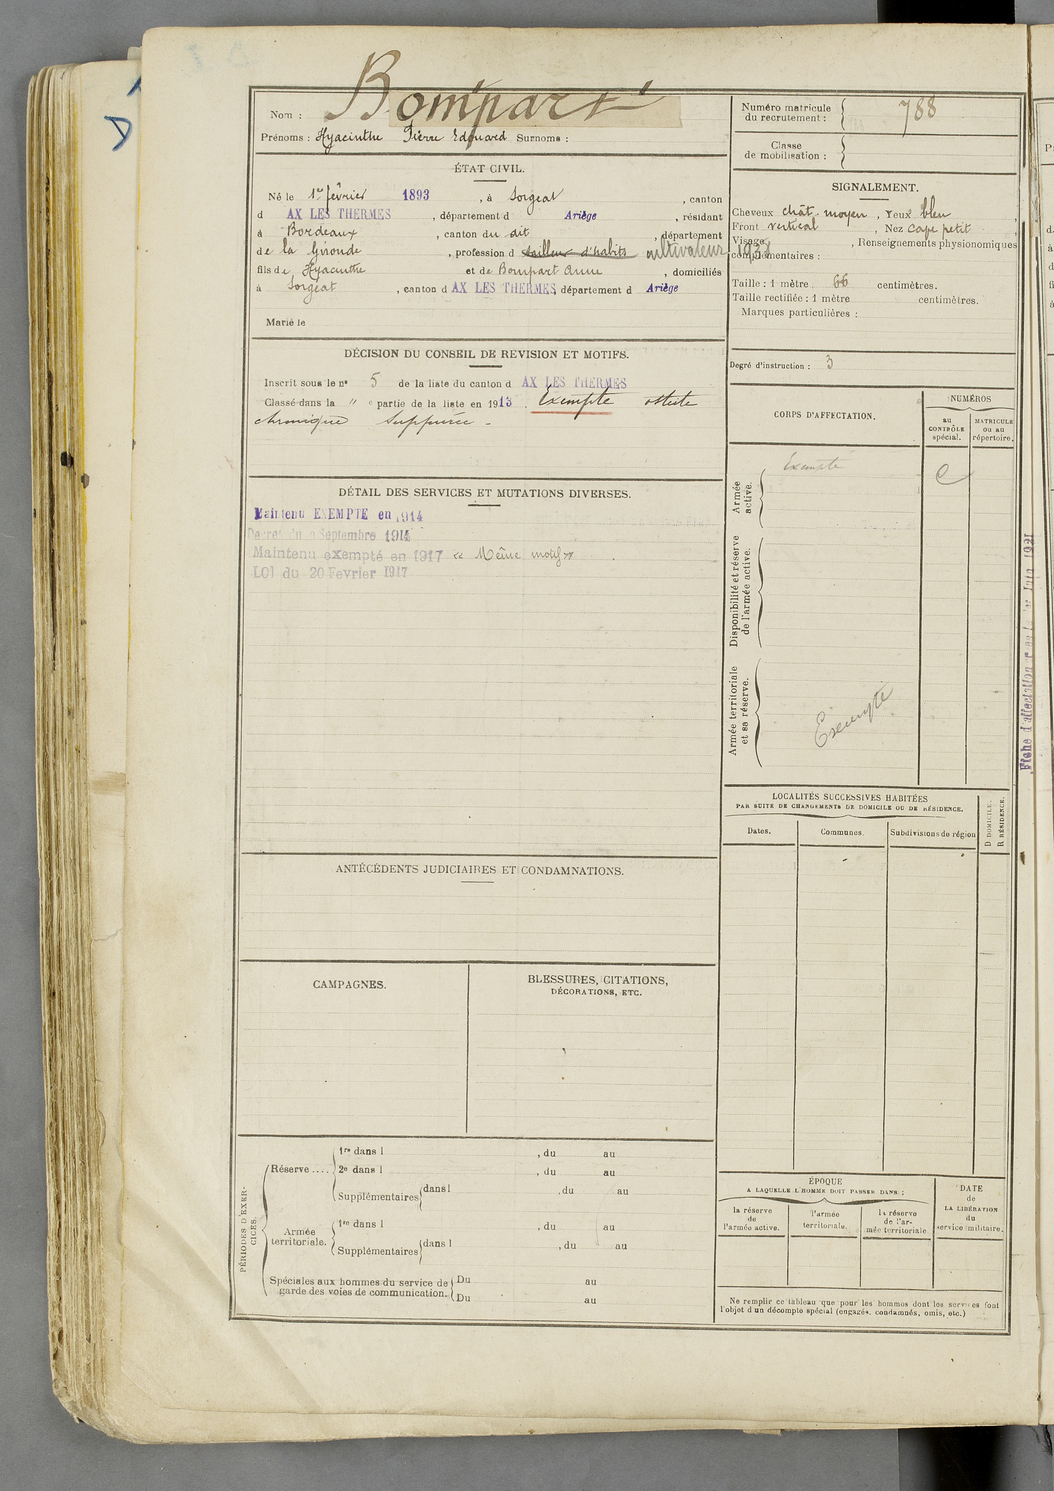 D
Nom : Bompart
Prénoms : Hyacinthe Pierre Edouard Surnoms :
ÉTAT CIVIL.
Né le 1er février 1893, à Sorgeat, canton
d AX LES THERMES, département d Ariège, résidant
à Bordeaux, canton du dit, département
de la Gironde, profession d tailleur d'habits cultivateur 1938
fils de Hyacinthe et de Bompart Anne, domiciliés
à Sorgeat, canton d AX LES THERMES, département d Ariège
Marié le
DÉCISION DU CONSEIL DE REVISION ET MOTIFS.
Inscrit sous le n° 5 de la liste du canton d AX LES THERMES
Classé dans la " e partie de la liste en 1913. Exempté otite
chronique suppurée -
DÉTAIL DES SERVICES ET MUTATIONS DIVERSES.
Maintenu EXEMPTÉ en 1914
Décret du 9 Septembre 1914
Maintenu exempté en 1917 « Même motif »
LOI du 20 Fevrier 1917
ANTÉCÉDENTS JUDICIAIRES ET CONDAMNATIONS.
CAMPAGNES.
BLESSURES, CITATIONS,
DÉCORATIONS, ETC.
PÉRIODES D'EXER-
CICES.
Réserve....
1re dans l , du au
2e dans l , du au
Supplémentaires dans l , du au
Armée
territoriale.
1re dans l , du au
Supplémentaires dans l , du au
Spéciales aux hommes du service de
garde des voies de communication.
Du au
Du au
Numéro matricule
du recrutement : 788
Classe
de mobilisation :
SIGNALEMENT.
Cheveux chât. moyen, Yeux bleu,
Front vertical, Nez cape petit.
Visage, Renseignements physionomiques
complémentaires :
Taille : 1 mètre 66 centimètres.
Taille rectifiée : 1 mètre centimètres.
Marques particulières :
Degré d'instruction : 3
CORPS D'AFFECTATION.
NUMÉROS
au
CONTRÔLE
spécial.
MATRICULE
ou au
répertoire.
Armée
active.
Exempté
Disponibilité et réserve
de l'armée active.
Armée territoriale
et sa réserve.
Exempté
LOCALITÉS SUCCESSIVES HABITÉES
PAR SUITE DE CHANGEMENTS DE DOMICILE OU DE RÉSIDENCE.
Dates.
Communes.
Subdivisions de région
D DOMICILE.
R RÉSIDENCE.
ÉPOQUE
A LAQUELLE L'HOMME DOIT PASSER DANS :
la réserve
de
l'armée active.
l'armée
territoriale.
la réserve
de l'ar-
mée territoriale
DATE
de
LA LIBÉRATION
du
service militaire.
Ne remplir ce tableau que pour les hommes dont les services font
l'objet d'un décompte spécial (engagés, condamnés, omis, etc.)